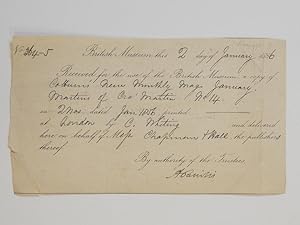 No 364-5 British Museum this 2 day of January 1856
Received for the use of the British Museum a copy of
Colburn's New Monthly Mag. January.
Martins of Cro' Martin No 4
in 2 Nos dated Jan 1856 printed
at London by C. Whiting and delivered
here on behalf of Messrs Chapman & Hall the publishers
thereof.
By authority of the Trustees.